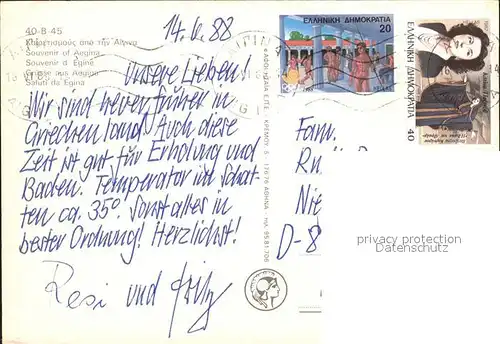 40-B-45
Χαιρετισμούς από την Αίγινα
Souvenir of Aegina
Souvenir d'Egine
Grüsse aus Aegina
Saluti da Egina
14.6.88
Unsere Lieben!
Wir sind heuer früher in
Griechenland. Auch diese
Zeit ist gut für Erholung und
Baden. Temperatur im Schat-
ten ca. 35°. Sonst alles in
bester Ordnung! Herzlichst!
Resi und Fritz
ΕΛΛΗΝΙΚΗ ΔΗΜΟΚΡΑΤΙΑ
20
ΕΛΛΗΝΙΚΗ ΔΗΜΟΚΡΑΤΙΑ 40
Fam.
Nie
D-8
privacy protection
Datenschutz